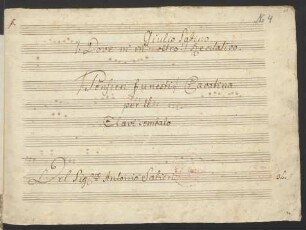 No 4
Giulio Sabino
Dove m'
Recitativo
Pensieri funesti Cavatina
per il
Clavicembalo
Del Sigr Antonio Salieri